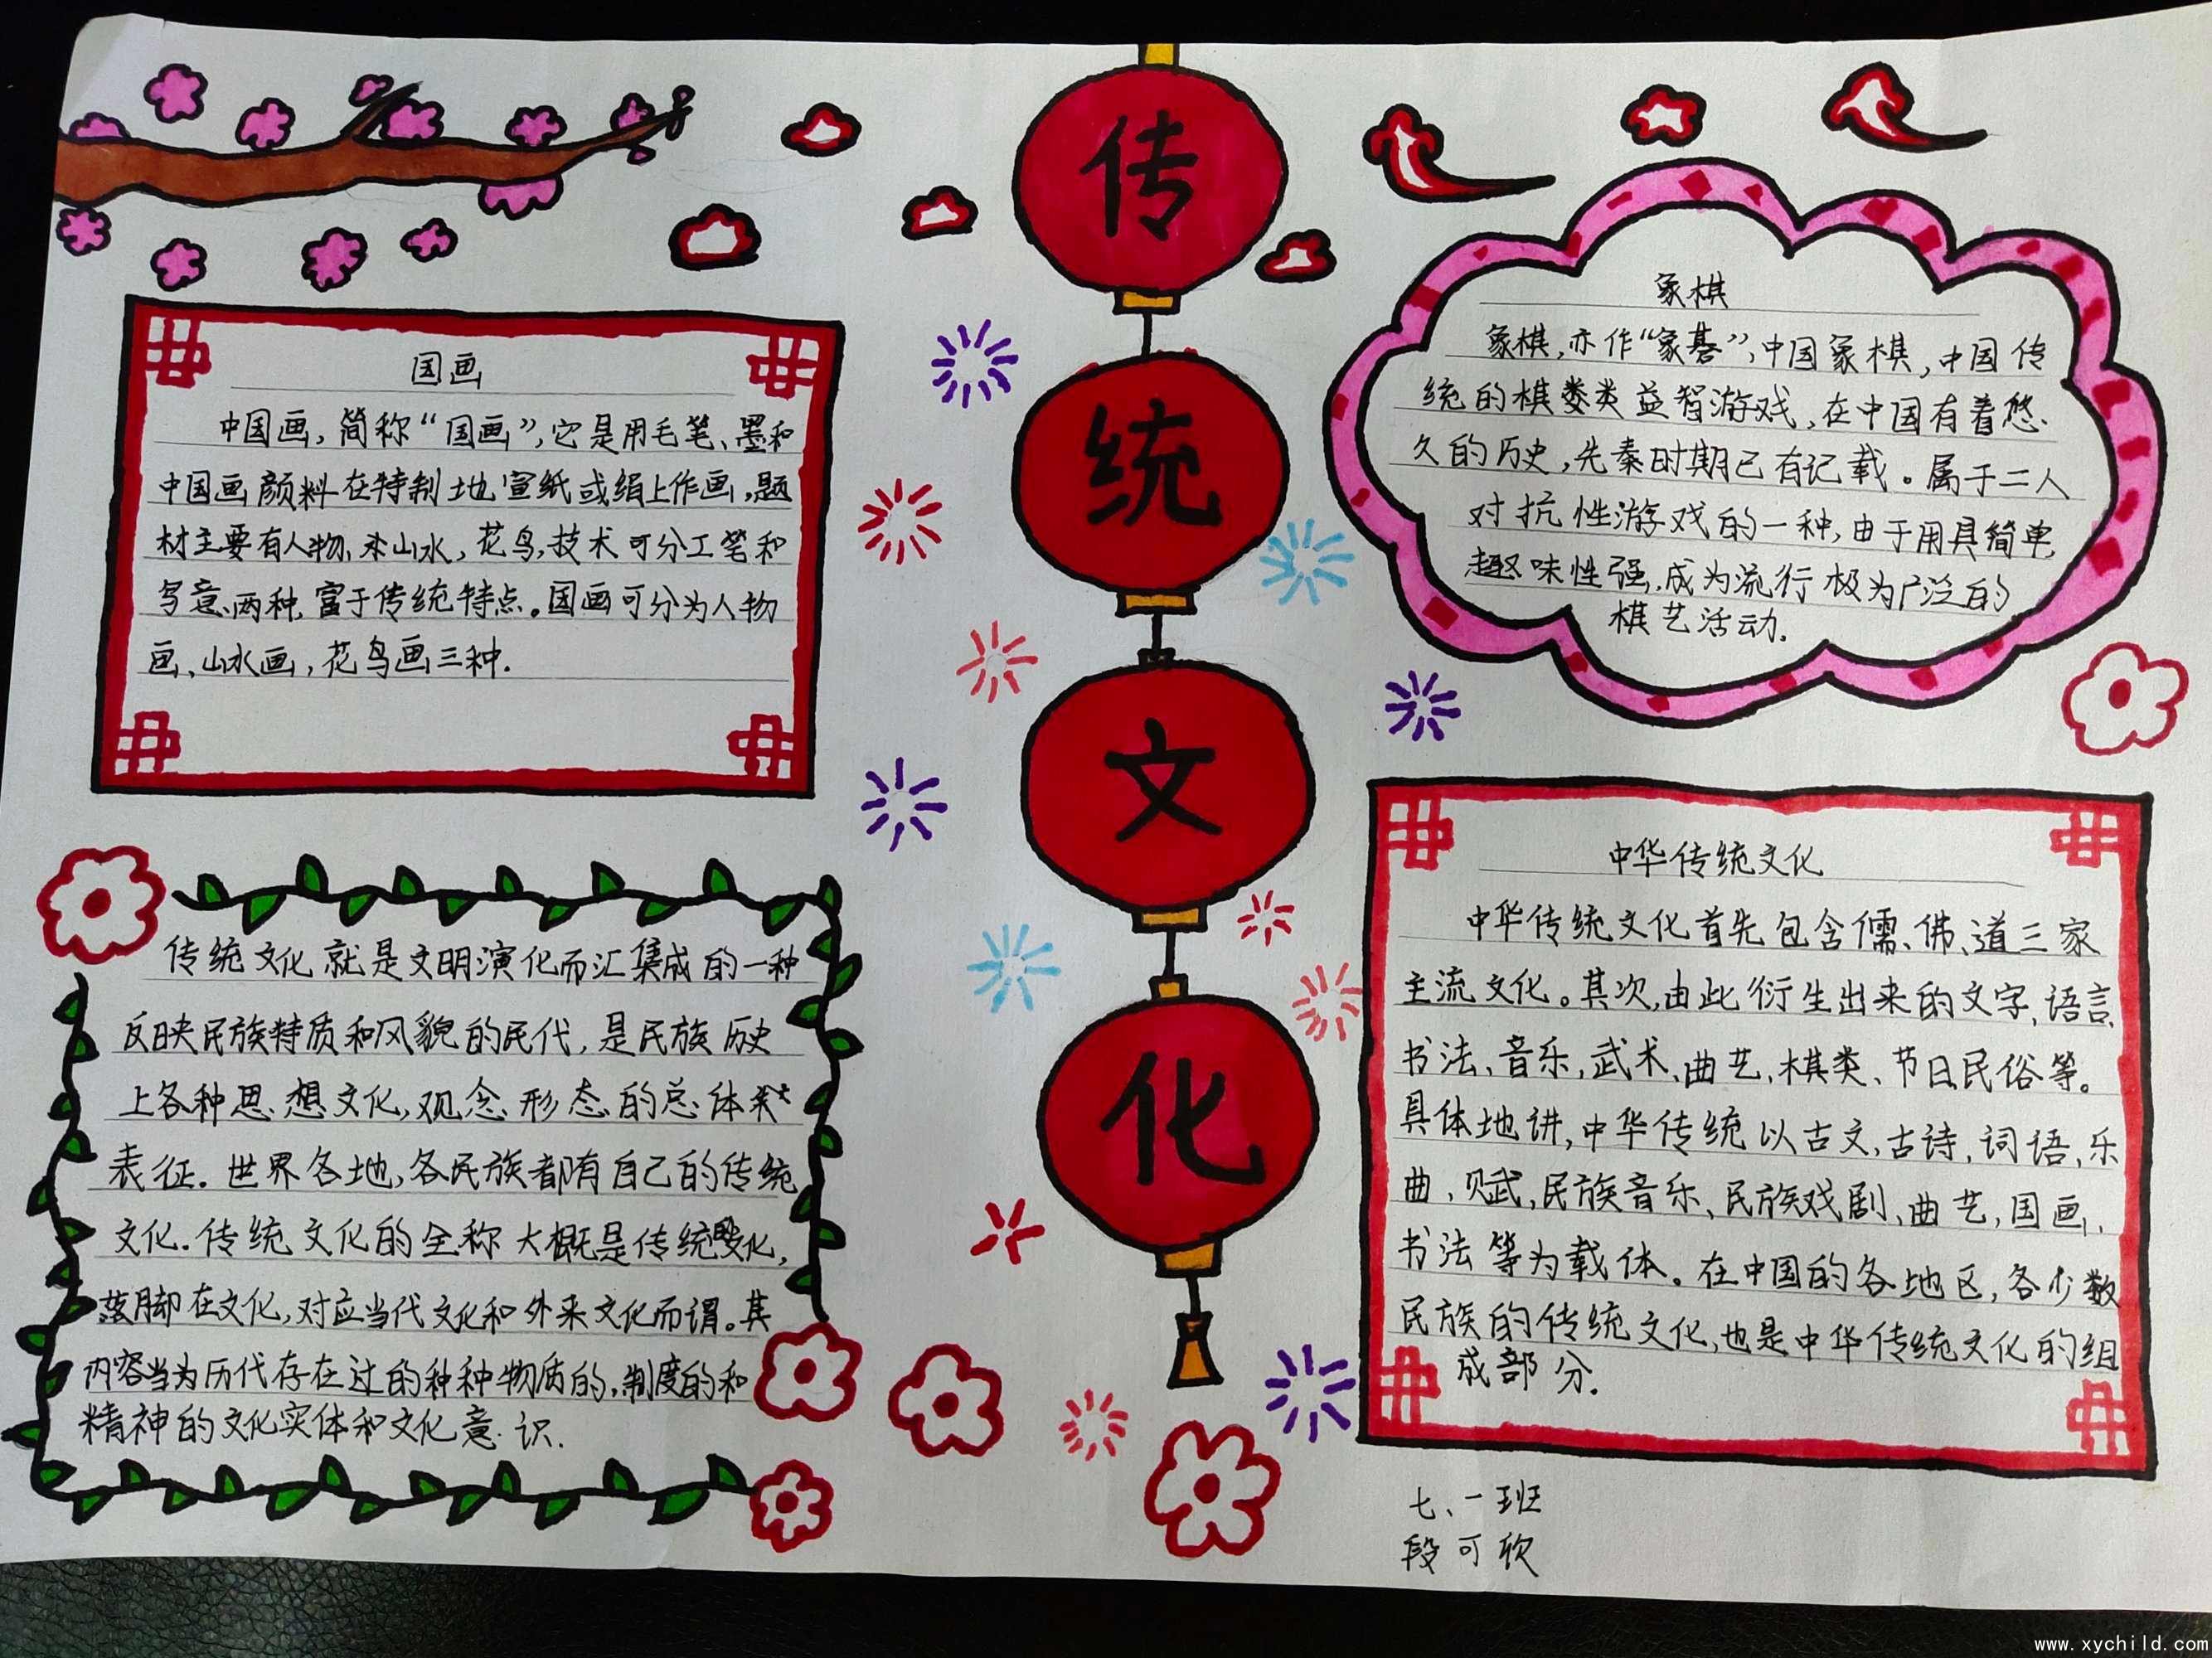 传
统
文
化
国画
中国画,简称“国画”,它是用毛笔、墨和
中国画颜料在特制地宣纸或绢上作画,题
材主要有人物、山水,花鸟,技术可分工笔和
写意、两种,富于传统特点。国画可分为人物
画、山水画,花鸟画三种.
象棋
象棋,亦作“象碁”,中国象棋,中国传
统的棋类益智游戏,在中国有着悠
久的历史,先秦时期已有记载。属于二人
对抗性游戏的一种,由于用具简单,
趣味性强,成为流行极为广泛的
棋艺活动.
传统文化就是文明演化而汇集成的一种
反映民族特质和风貌的民代,是民族历史
上各种思想文化,观念形态的总体
表征.世界各地,各民族都有自己的传统
文化.传统文化的全称大概是传统文化,
落脚在文化,对应当代文化和外来文化而谓。其
内容当为历代存在过的种种物质的,制度的和
精神的文化实体和文化意识.
中华传统文化
中华传统文化首先包含儒、佛、道三家
主流文化。其次,由此衍生出来的文字、语言
书法、音乐,武术、曲艺,棋类、节日民俗等。
具体地讲,中华传统以古文,古诗,词语,乐
曲,赋,民族音乐、民族戏剧、曲艺,国画、
书法等为载体。在中国的各地区,各少数
民族的传统文化,也是中华传统文化的组
成部分.
七、一班
段可欣
www.xychild.com